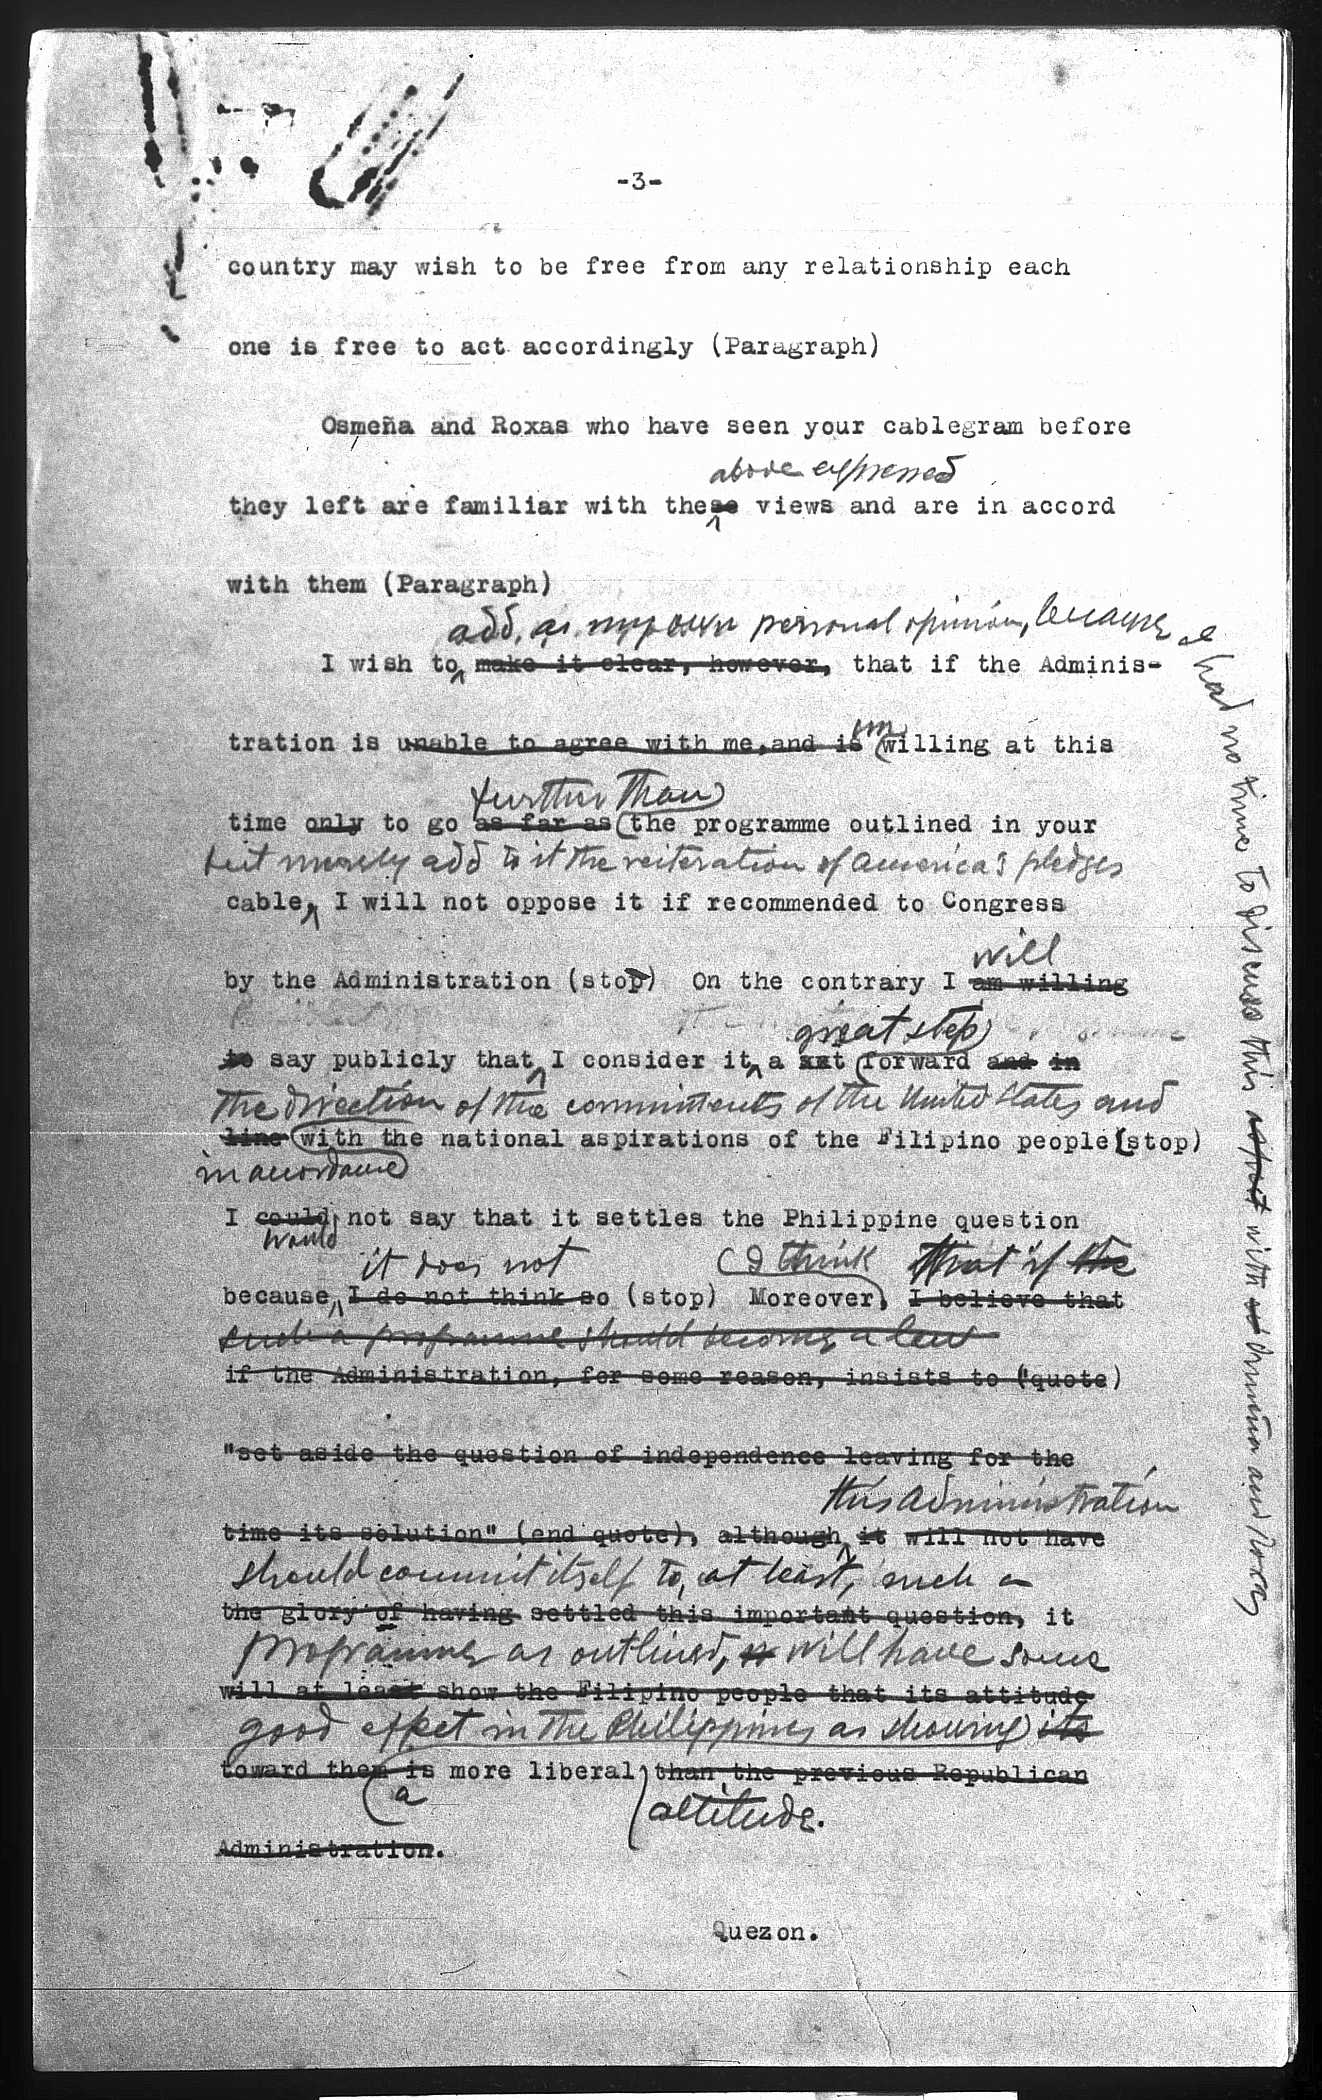 -3-
country may wish to be free from any relationship each
one is free to act accordingly (Paragraph)
Osmeña and Roxas who have seen your cablegram before
above expressed
they left are familiar with these views and are in accord
with them (Paragraph)
add, as my own personal opinion, because I had no time to discuss this aspect with Osmeña and Roxas
I wish to make it clear, however, that if the Adminis-
tration is unable to agree with me, and is willing at this
un
further than
time only to go as far as the programme outlined in your
but merely add to it the reiteration of America's pledges
cable, I will not oppose it if recommended to Congress
will
by the Administration (stop) On the contrary I am willing
great step
to say publicly that I consider it a forward and in
the direction of the commitments of the United States and
line with the national aspirations of the Filipino people (stop)
in accordance
I could not say that it settles the Philippine question
would
it does not I think that if the
because I do not think so (stop) Moreover, I believe that
such a programme should become a law
if the Administration, for some reason, insists to (quote)
"set aside the question of independence leaving for the
this Administration
time its solution" (end quote), although it will not have
should commit itself to, at least, such a
the glory of having settled this important question, it
programme as outlined, will have some
will at least show the Filipino people that its attitude
good effect in the Philippines as showing its
toward them is more liberal than the previous Republican
a attitude.
Administration.
Quezon.